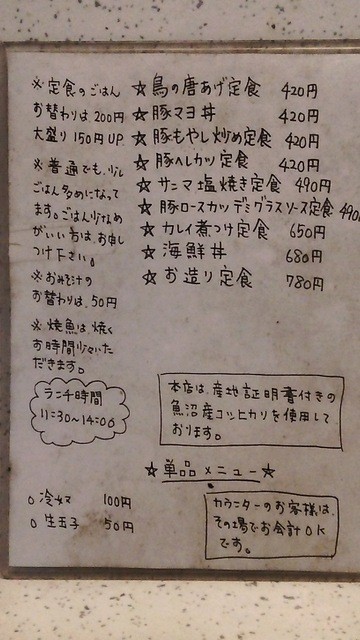 ☆ 鳥の唐あげ定食 420円
☆ 豚マヨ丼 420円
☆ 豚もやし炒め定食 420円
☆ 豚ヘレカツ定食 420円
☆ サンマ塩焼き定食 490円
☆ 豚ロースカツデミグラスソース定食 490
☆ カレイ煮つけ定食 650円
☆ 海鮮丼 680円
☆ お造り定食 780円
※ 定食のごはん
お替わりは 200円
大盛り 150円 UP.
※ 普通でも、少し
ごはん多めになって
ます。ごはん少なめ
がいい方は、お申し
つけ下さい。
※ おみそ汁の
お替わりは、50円
※ 焼魚は、焼く
お時間少々いた
だきます。
ランチ時間
11:30~14:00
本店は、産地証明書付きの
魚沼産コシヒカリを使用して
おります。
☆ 単品メニュー ☆
○ 冷奴 100円
○ 生玉子 50円
カウンターのお客様は、
その場でお会計OK
です。